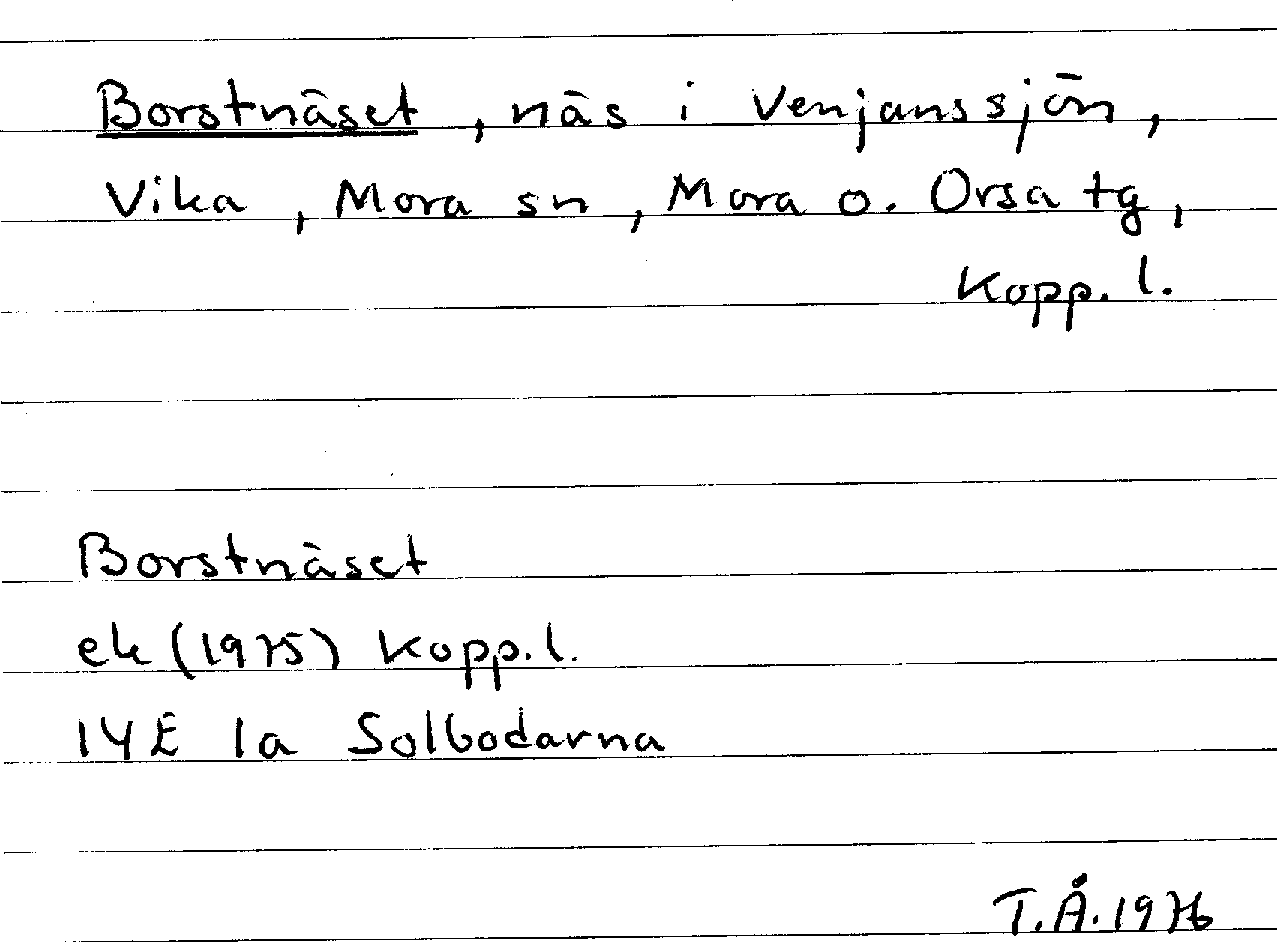 Borstnäset, näs i Venjanssjön,
Vika, Mora sn, Mora o. Orsa tg,
Kopp. l.
Borstnäset
ek (1975) Kopp. l.
14E 1a Solbodarna
T.Å. 1976